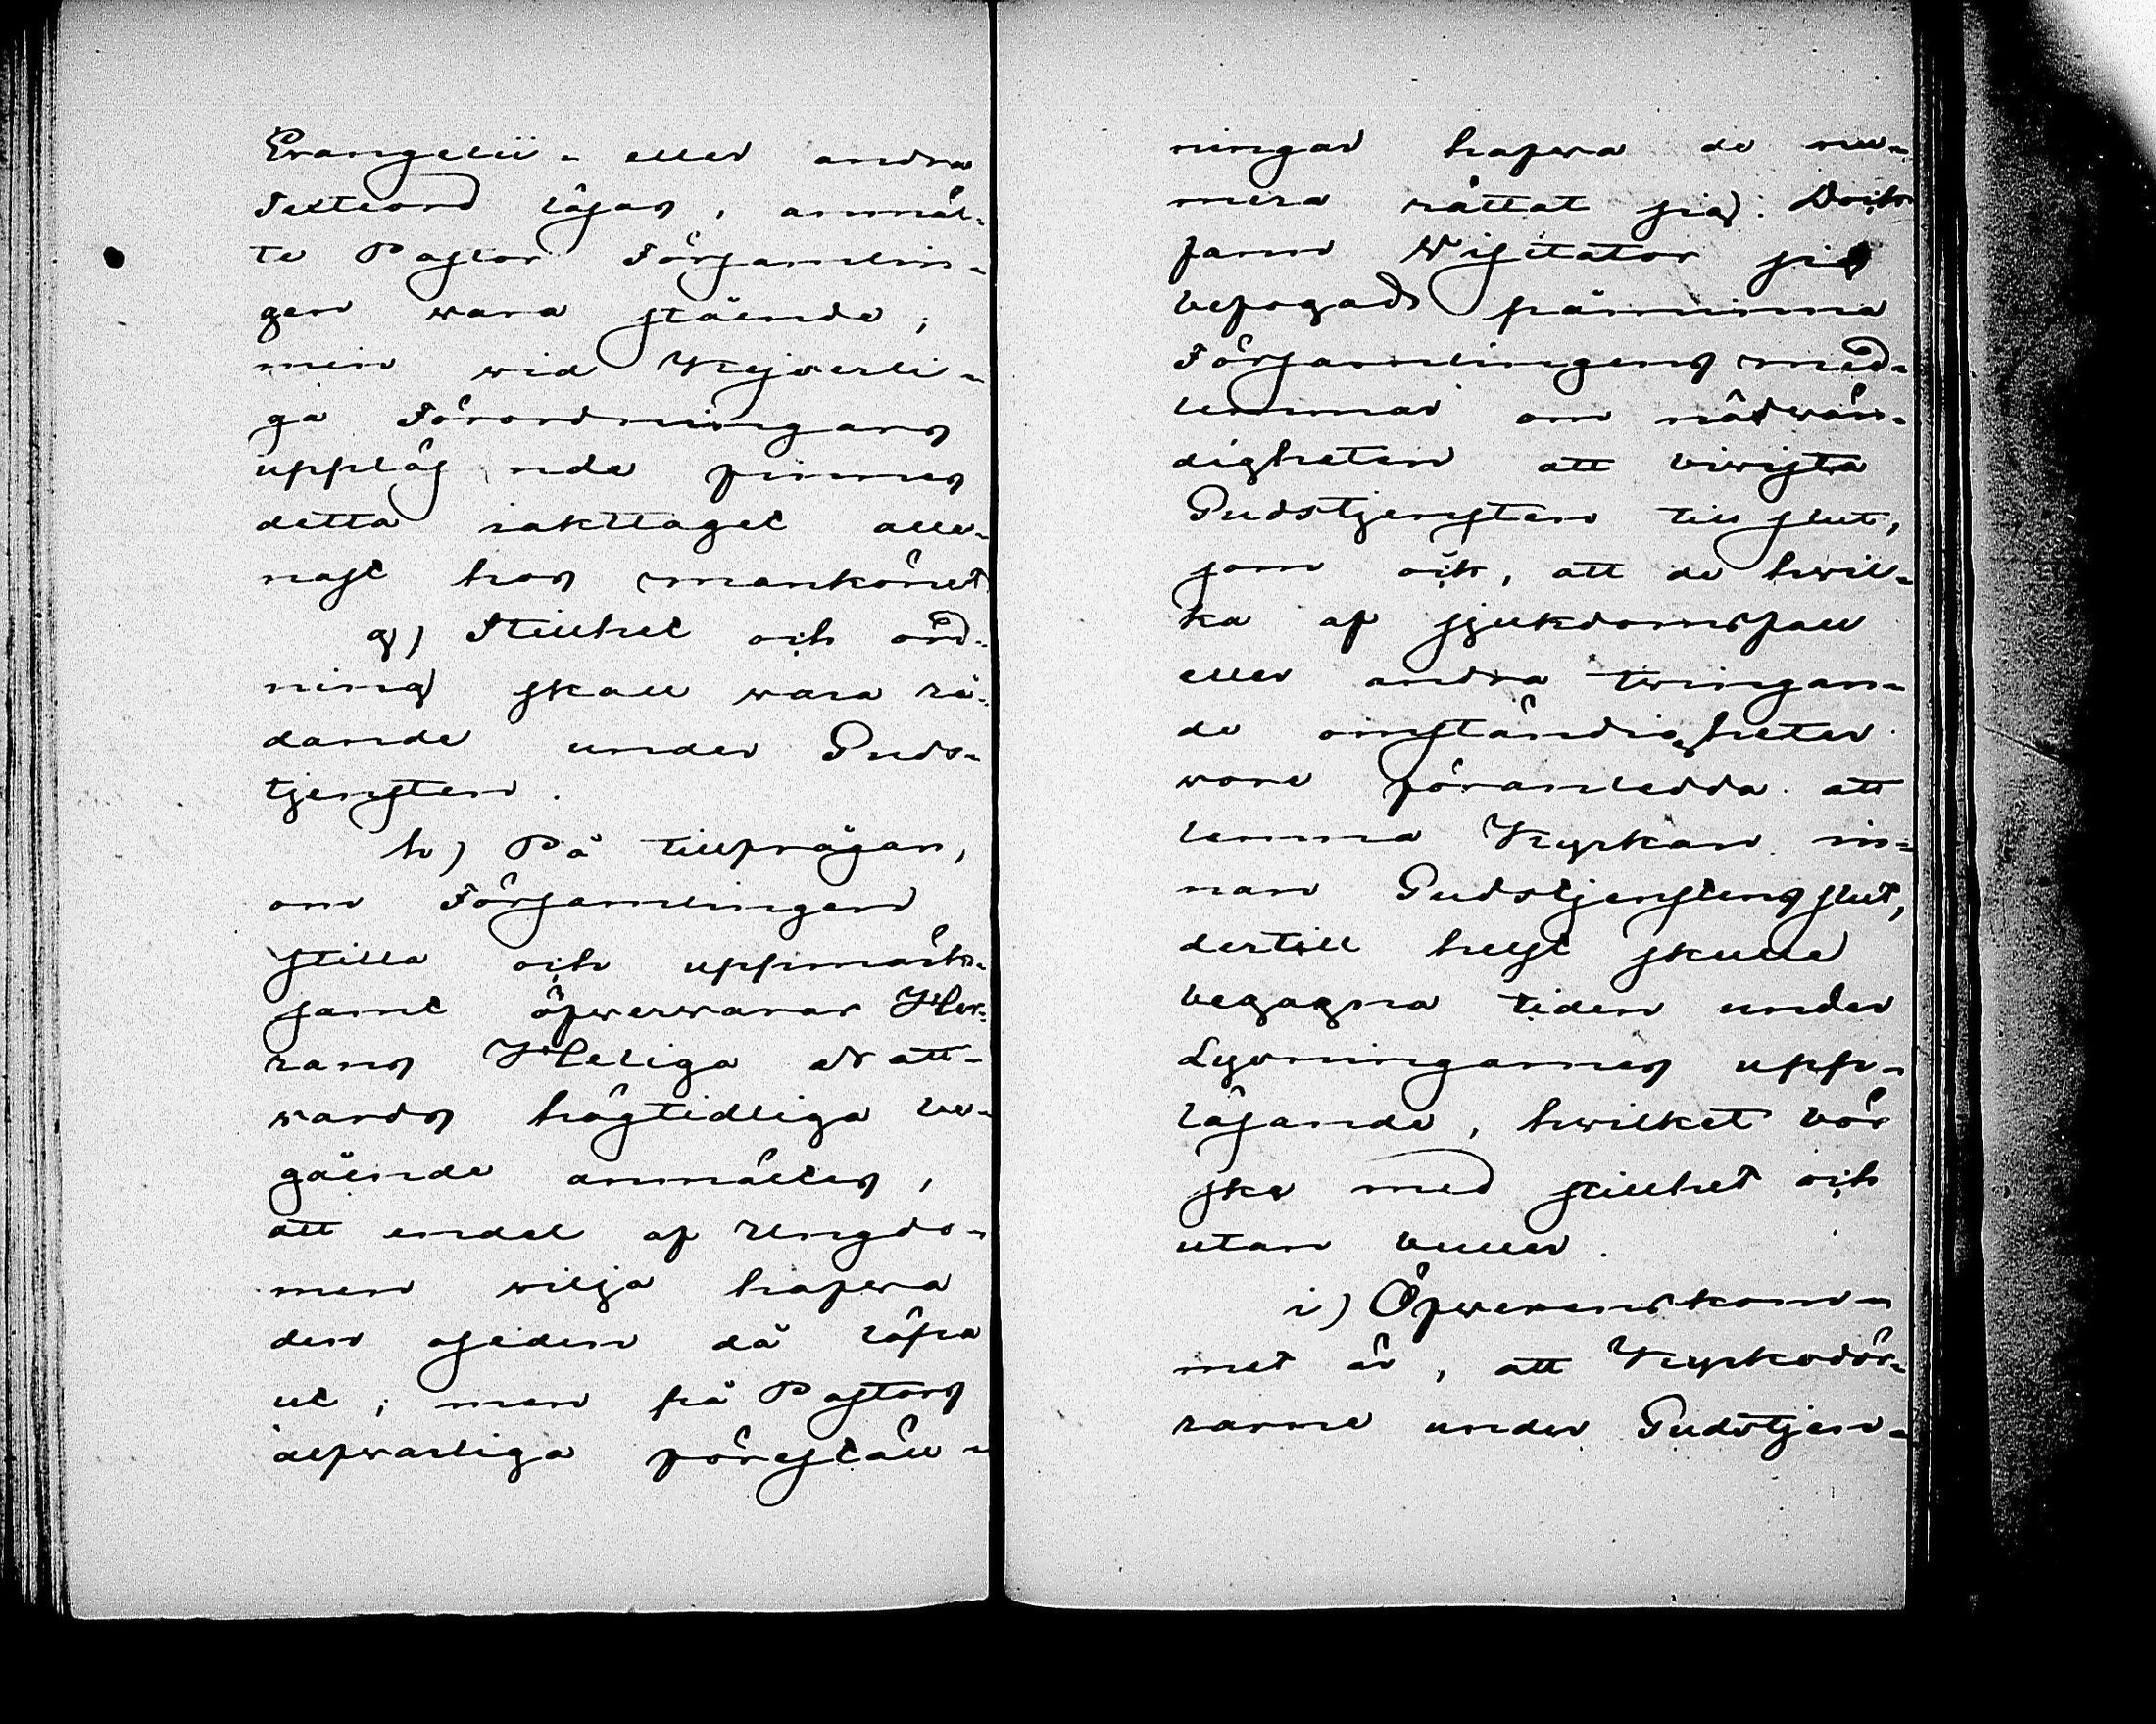 Evangelii- eller andra
Texteord läsas, anmäl-
te Pastor Församlin-
gen wara stående;
men wid Kejserli-
ga Förordningars
uppläs nde finnes
detta iakttaget alle-
nast hos mankönet
g) Stillhet och ord-
ning skall wara rå-
dande under Guds-
tjensten.
h) På tillfrågan,
om Församlingen
stilla och uppmärk-
samt öfwerwarar Her-
rans Heliga Natt-
wards högtidliga be-
gående anmältes,
att endel af Ungdo-
men wilja hafwa
den oseden då löpa
ut; men på Pastors
alfwarliga föreställ-
ningar hafwa de nu-
mera rättat sig. Dock
fann Wisitator sig
befogad påminna
Församlingens med-
lemmar om nödwän-
digheten att biwista
Gudstjensten till slut,
som ock, att de hwil-
ka af sjukdomsfall
eller andra twingan-
de omständigheter
wore föranledda att
lemna Kyrkan in-
nan Gudstjenstens slut,
dertill helst skulle
begagna tiden under
Lysningarnes upp-
läsande, hwilket bör
ske med stillhet och
utan buller.
i) Öfwerenskom-
met är, att Kyrkodör-
rarne under Gudstjen-